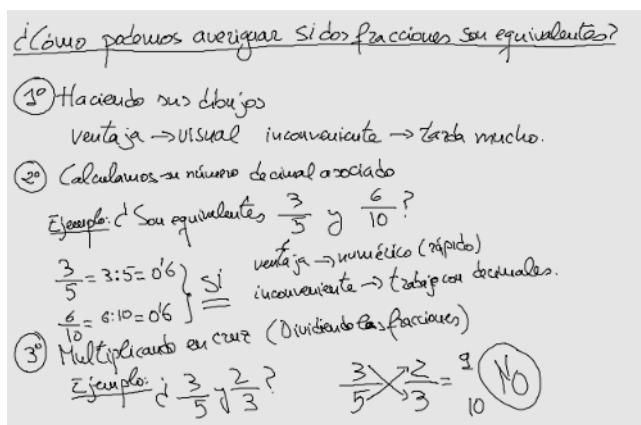 ¿Cómo podemos averiguar si dos fracciones son equivalentes?
1º Haciendo sus dibujos
ventaja → visual inconveniente → tarda mucho.
2º Calculamos su número decimal asociado
Ejemplo: ¿Son equivalentes 3/5 y 6/10?
3/5 = 3:5 = 0'6
6/10 = 6:10 = 0'6
SÍ
ventaja → numérico (rápido)
inconveniente → trabajo con decimales.
3º Multiplicando en cruz (Dividiendo las fracciones)
Ejemplo: ¿3/5 y 2/3? 3/5 2/3 = 9 10 NO